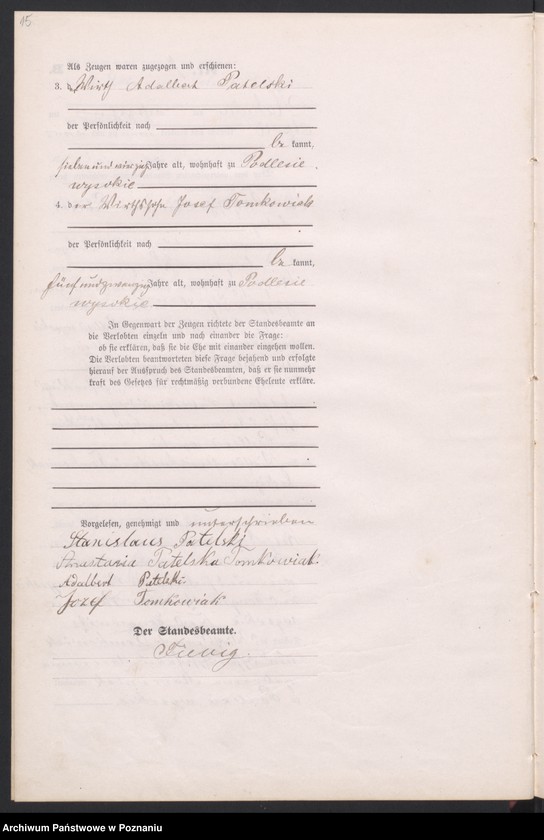 15
Als Zeugen waren zugezogen und erschienen:
3. der Wirth Adalbert Patelski
der Persönlichkeit nach
be kannt,
sieben und vierzig Jahre alt, wohnhaft zu Podlesie
wysokie
4. der Wirthssohn Josef Tomkowiak
der Persönlichkeit nach
be kannt,
fünf und zwanzig Jahre alt, wohnhaft zu Podlesie
wysokie
In Gegenwart der Zeugen richtete der Standesbeamte an
die Verlobten einzeln und nach einander die Frage:
ob sie erklären, daß sie die Ehe mit einander eingehen wollen.
Die Verlobten beantworteten diese Frage bejahend und erfolgte
hierauf der Ausspruch des Standesbeamten, daß er sie nunmehr
kraft des Gesetzes für rechtmäßig verbundene Eheleute erkläre.
Vorgelesen, genehmigt und unterschrieben
Stanislaus Patelski
Anastasia Patelska Tomkowiak
Adalbert Patelski
Jozef Tomkowiak
Der Standesbeamte.
Archiwum Państwowe w Poznaniu